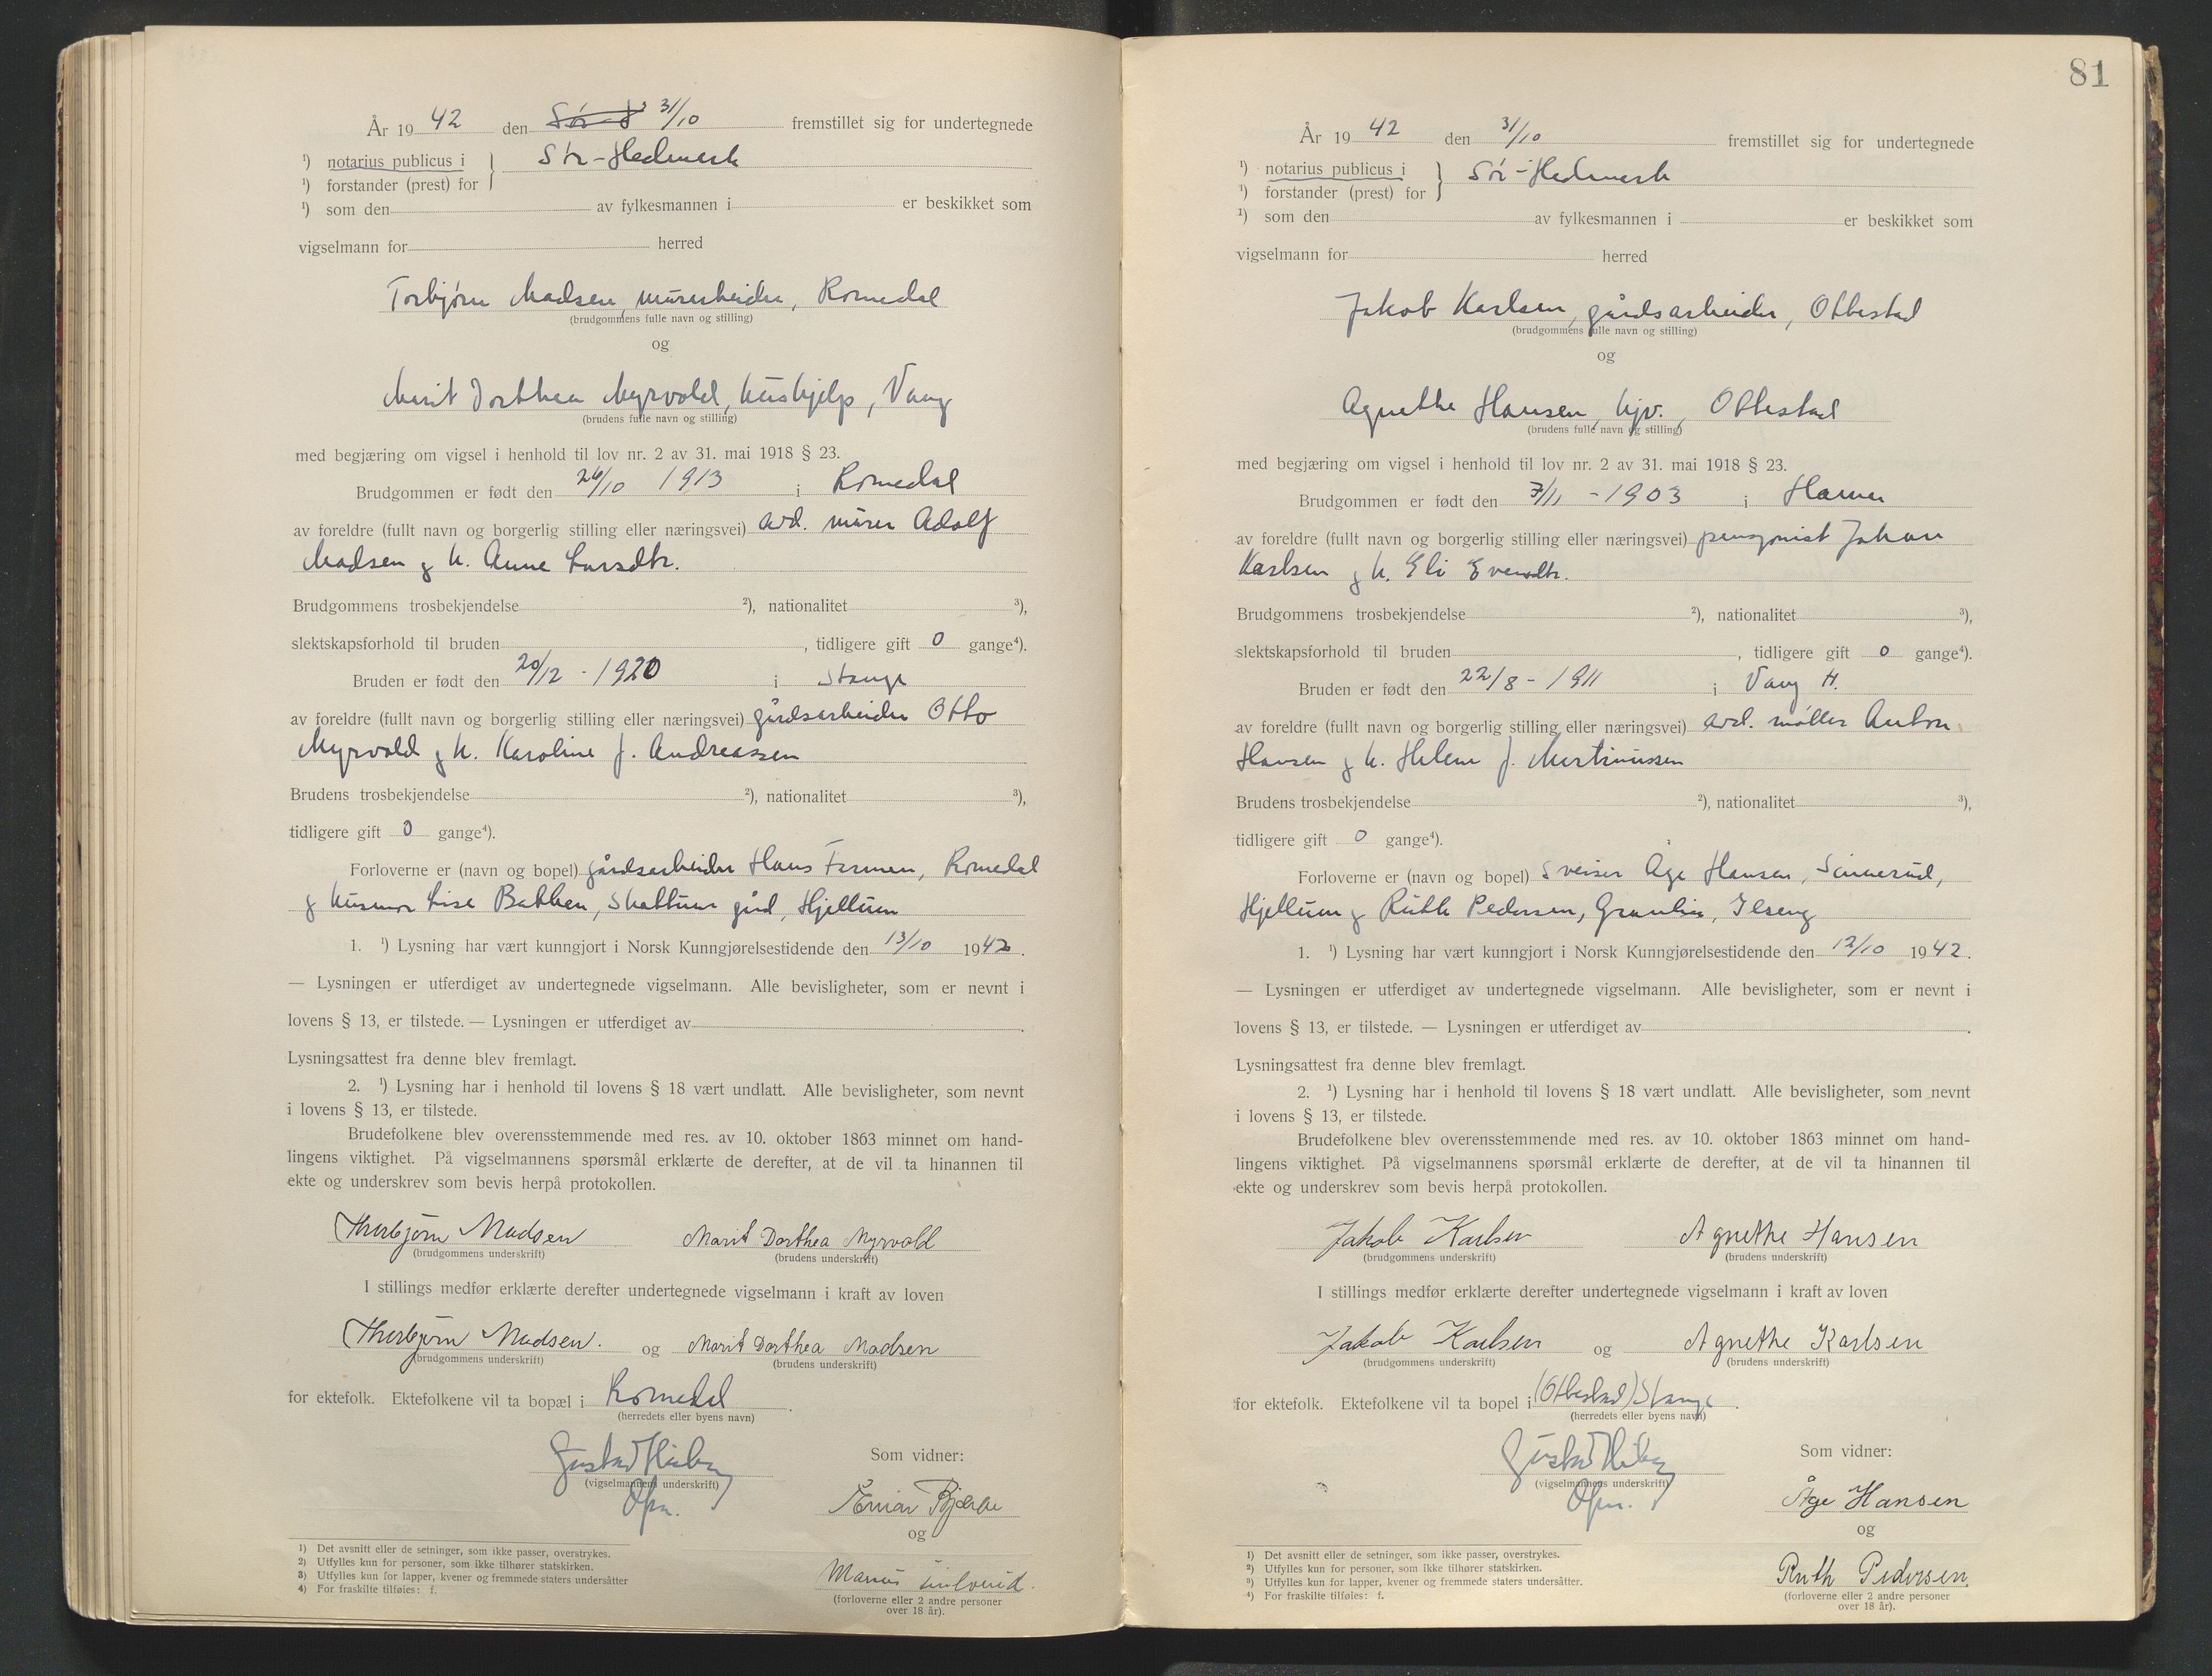 År 19 42 den Sør-H 31/10 fremstillet sig for undertegnede
¹) notarius publicus i } Sør-Hedmark
¹) forstander (prest) for
¹) som den av fylkesmannen i er beskikket som
vigselmann for herred
Torbjørn Madsen, murerarbeider, Romedal
(brudgommens fulle navn og stilling)
og
Marit Dorthea Myrvold, hushjelp, Vang
(brudens fulle navn og stilling)
med begjæring om vigsel i henhold til lov nr. 2 av 31. mai 1918 § 23.
Brudgommen er født den 26/10 1913 i Romedal
av foreldre (fullt navn og borgerlig stilling eller næringsvei) avd. murer Adolf
Madsen og h. Anne Larsdtr.
Brudgommens trosbekjendelse ²), nationalitet ³),
slektskapsforhold til bruden , tidligere gift 0 gange⁴).
Bruden er født den 20/12 - 1920 i Stange
av foreldre (fullt navn og borgerlig stilling eller næringsvei) gårdsarbeider Otto
Myrvold og h. Karoline f. Andreassen
Brudens trosbekjendelse ²), nationalitet ³),
tidligere gift 0 gange⁴).
Forloverne er (navn og bopel) gårdsarbeider Hans Farmen, Romedal
og husmor Lise Bakken, Skattum gård, Hjellum
1. ¹) Lysning har vært kunngjort i Norsk Kunngjørelsestidende den 13/10 1942.
— Lysningen er utferdiget av undertegnede vigselmann. Alle bevisligheter, som er nevnt i
lovens § 13, er tilstede. — Lysningen er utferdiget av .
Lysningsattest fra denne blev fremlagt.
2. ¹) Lysning har i henhold til lovens § 18 vært undlatt. Alle bevisligheter, som nevnt
i lovens § 13, er tilstede.
Brudefolkene blev overensstemmende med res. av 10. oktober 1863 minnet om hand-
lingens viktighet. På vigselmannens spørsmål erklærte de derefter, at de vil ta hinannen til
ekte og underskrev som bevis herpå protokollen.
Thorbjørn Madsen Marit Dorthea Myrvold
(brudgommens underskrift) (brudens underskrift)
I stillings medfør erklærte derefter undertegnede vigselmann i kraft av loven
Thorbjørn Madsen. og Marit Dorthea Madsen
(brudgommens underskrift) (brudens underskrift)
for ektefolk. Ektefolkene vil ta bopæl i Romedal .
(herredets eller byens navn)
Gustav Heiberg Som vidner:
(vigselmannens underskrift)
Ofm. Einar Bjerke
og
Marius
(forloverne eller 2 andre personer
over 18 år).
1) Det avsnitt eller de setninger, som ikke passer, overstrykes.
2) Utfylles kun for personer, som ikke tilhører statskirken.
3) Utfylles kun for lapper, kvener og fremmede staters undersåtter
4) For fraskilte tilføies: f.
81
År 19 42 den 31/10 fremstillet sig for undertegnede
¹) notarius publicus i } Sør-Hedmark
¹) forstander (prest) for
¹) som den av fylkesmannen i er beskikket som
vigselmann for herred
Jakob Karlsen, gårdsarbeider, Ottestad
(brudgommens fulle navn og stilling)
og
Agnethe Hansen, hjv., Ottestad
(brudens fulle navn og stilling)
med begjæring om vigsel i henhold til lov nr. 2 av 31. mai 1918 § 23.
Brudgommen er født den 7/11 - 1903 i Hamar
av foreldre (fullt navn og borgerlig stilling eller næringsvei) pensjonist Johan
Karlsen og h. Eli Evensdtr.
Brudgommens trosbekjendelse ²), nationalitet ³),
slektskapsforhold til bruden , tidligere gift 0 gange⁴).
Bruden er født den 22/8 - 1911 i Vang H.
av foreldre (fullt navn og borgerlig stilling eller næringsvei) avd. møller Anton
Hansen og h. Helene f. Martinussen
Brudens trosbekjendelse ²), nationalitet ³),
tidligere gift 0 gange⁴).
Forloverne er (navn og bopel) Sveiser Åge Hansen, Sinnerud,
Hjellum og Ruth Pedersen, Granlia, Ilseng
1. ¹) Lysning har vært kunngjort i Norsk Kunngjørelsestidende den 12/10 1942.
— Lysningen er utferdiget av undertegnede vigselmann. Alle bevisligheter, som er nevnt i
lovens § 13, er tilstede. — Lysningen er utferdiget av .
Lysningsattest fra denne blev fremlagt.
2. ¹) Lysning har i henhold til lovens § 18 vært undlatt. Alle bevisligheter, som nevnt
i lovens § 13, er tilstede.
Brudefolkene blev overensstemmende med res. av 10. oktober 1863 minnet om hand-
lingens viktighet. På vigselmannens spørsmål erklærte de derefter, at de vil ta hinannen til
ekte og underskrev som bevis herpå protokollen.
Jakob Karlsen Agnethe Hansen
(brudgommens underskrift) (brudens underskrift)
I stillings medfør erklærte derefter undertegnede vigselmann i kraft av loven
Jakob Karlsen og Agnethe Karlsen
(brudgommens underskrift) (brudens underskrift)
for ektefolk. Ektefolkene vil ta bopel i (Ottestad) Stange .
(herredets eller byens navn)
Gustav Heiberg Som vidner:
(vigselmannens underskrift)
Ofm. Åge Hansen
og
Ruth Pedersen.
(forloverne eller 2 andre personer
over 18 år).
1) Det avsnitt eller de setninger, som ikke passer, overstrykes.
2) Utfylles kun for personer, som ikke tilhører statskirken.
3) Utfylles kun for lapper, kvener og fremmede staters undersåtter.
4) For fraskilte tilføies: f.